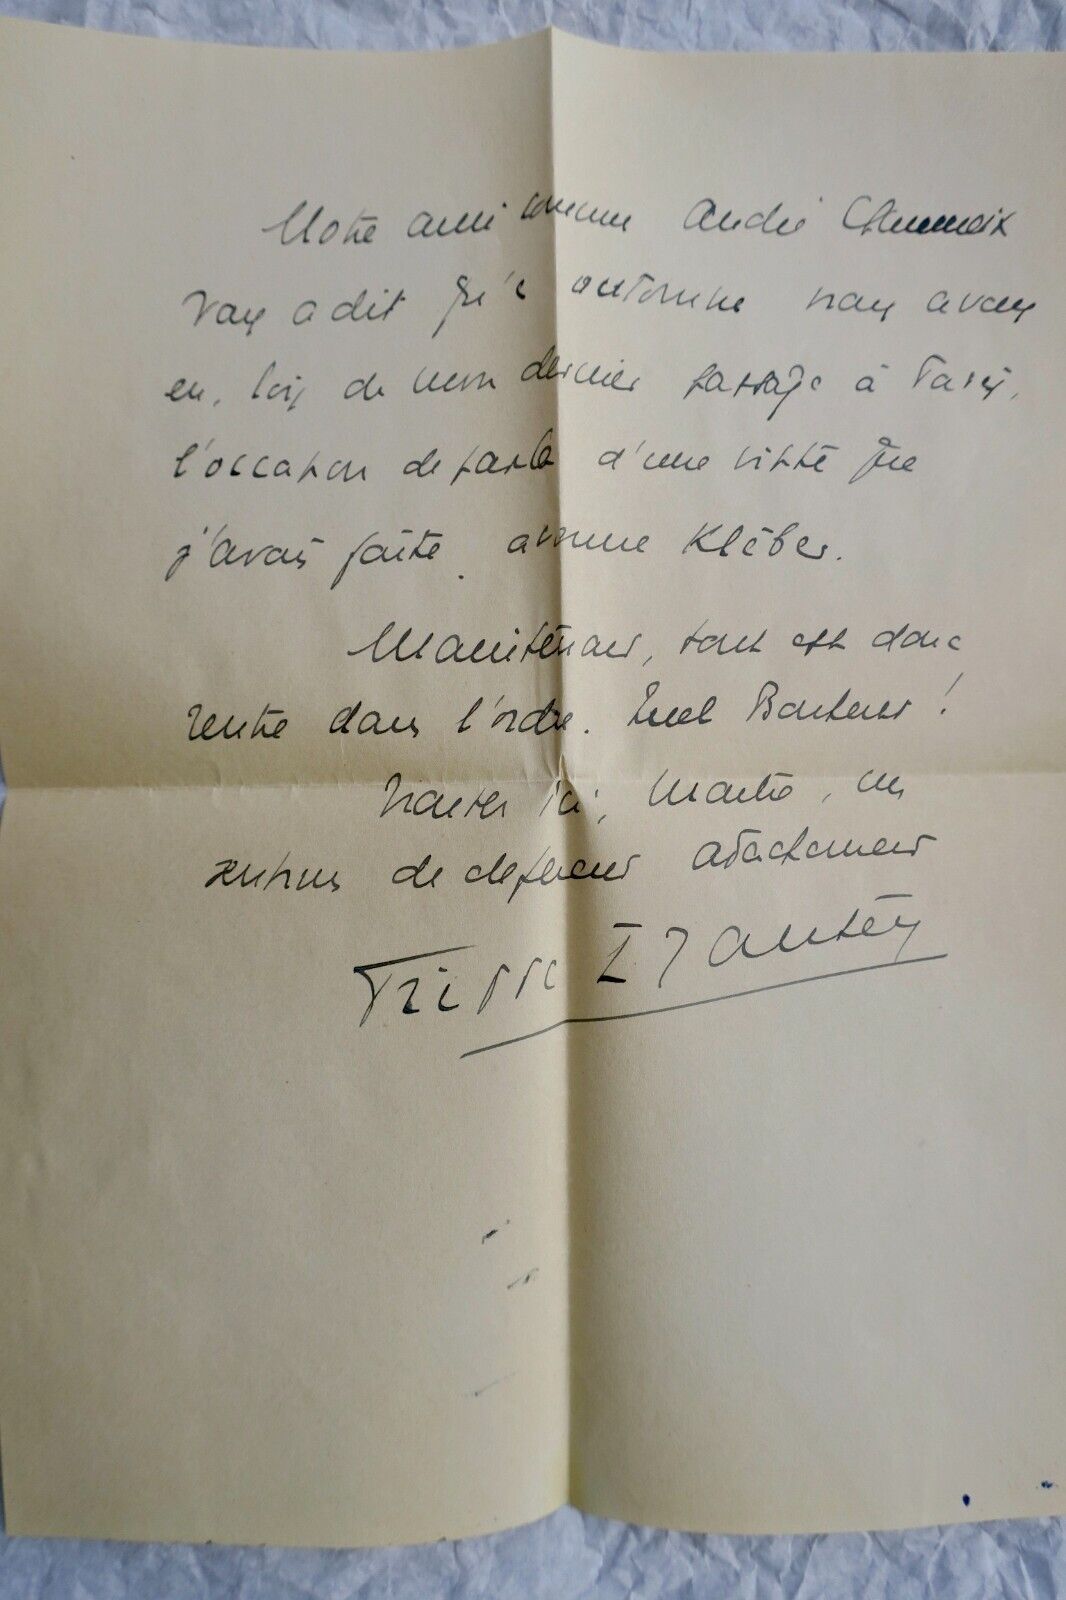 Notre ami commun André Chaumeix
vous a dit qu'à automne nous avons
eu, lors de mon dernier passage à Paris,
l'occasion de parler d'une visite que
j'avais faite avenue Kléber.
Maintenant, tout est donc
rentré dans l'ordre. Quel Bonheur !
ici, Maître, mes
sentiments de déférent attachement